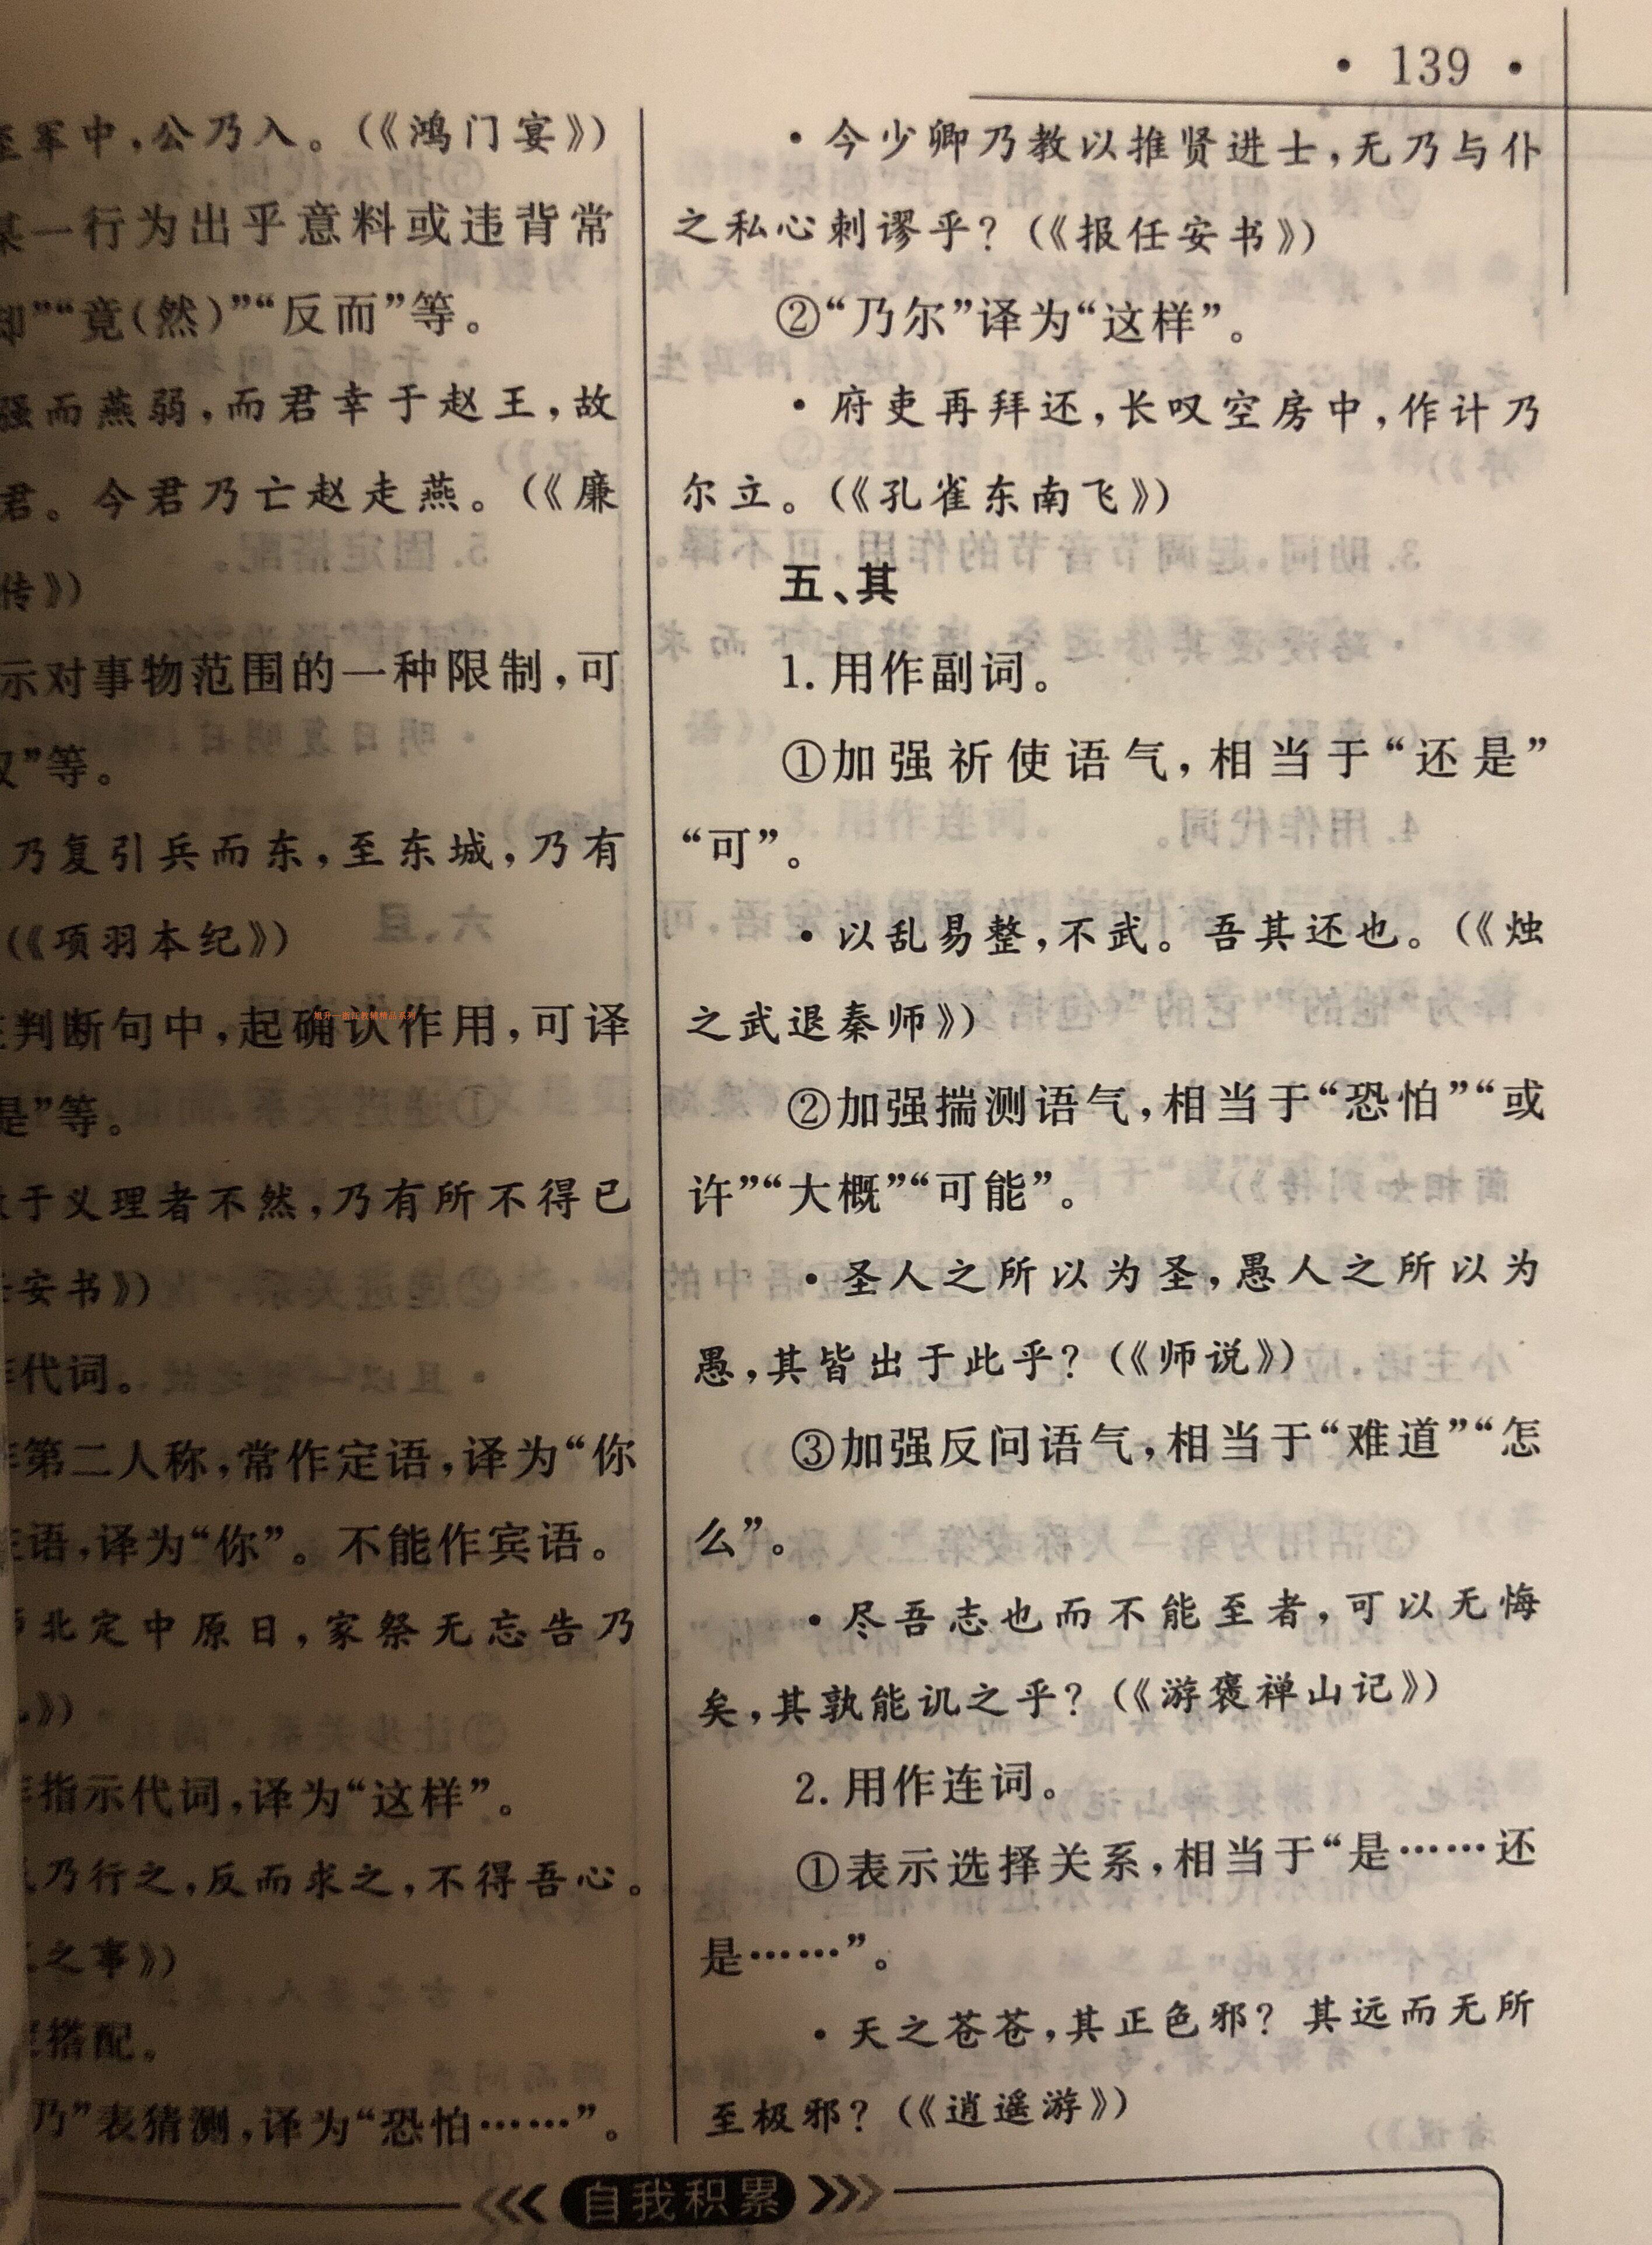 · 139 ·
军中，公乃入。(《鸿门宴》)
某一行为出乎意料或违背常
却”“竟(然)”“反而”等。
强而燕弱，而君幸于赵王，故
君。今君乃亡赵走燕。(《廉
传》)
示对事物范围的一种限制，可
”等。
乃复引兵而东，至东城，乃有
(《项羽本纪》)
判断句中，起确认作用，可译
是”等。
于义理者不然，乃有所不得已
安书》)
代词。
第二人称，常作定语，译为“你
语，译为“你”。不能作宾语。
北定中原日，家祭无忘告乃
》)
指示代词，译为“这样”。
乃行之，反而求之，不得吾心。
之事》)
搭配。
乃”表猜测，译为“恐怕……”。
·今少卿乃教以推贤进士，无乃与仆
之私心刺谬乎？(《报任安书》)
②“乃尔”译为“这样”。
·府吏再拜还，长叹空房中，作计乃
尔立。(《孔雀东南飞》)
五、其
1. 用作副词。
①加强祈使语气，相当于“还是”
“可”。
·以乱易整，不武。吾其还也。(《烛
之武退秦师》)
②加强揣测语气，相当于“恐怕”“或
许”“大概”“可能”。
·圣人之所以为圣，愚人之所以为
愚，其皆出于此乎？(《师说》)
③加强反问语气，相当于“难道”“怎
么”。
·尽吾志也而不能至者，可以无悔
矣，其孰能讥之乎？(《游褒禅山记》)
2. 用作连词。
①表示选择关系，相当于“是……还
是……”。
·天之苍苍，其正色邪？其远而无所
至极邪？(《逍遥游》)
自我积累